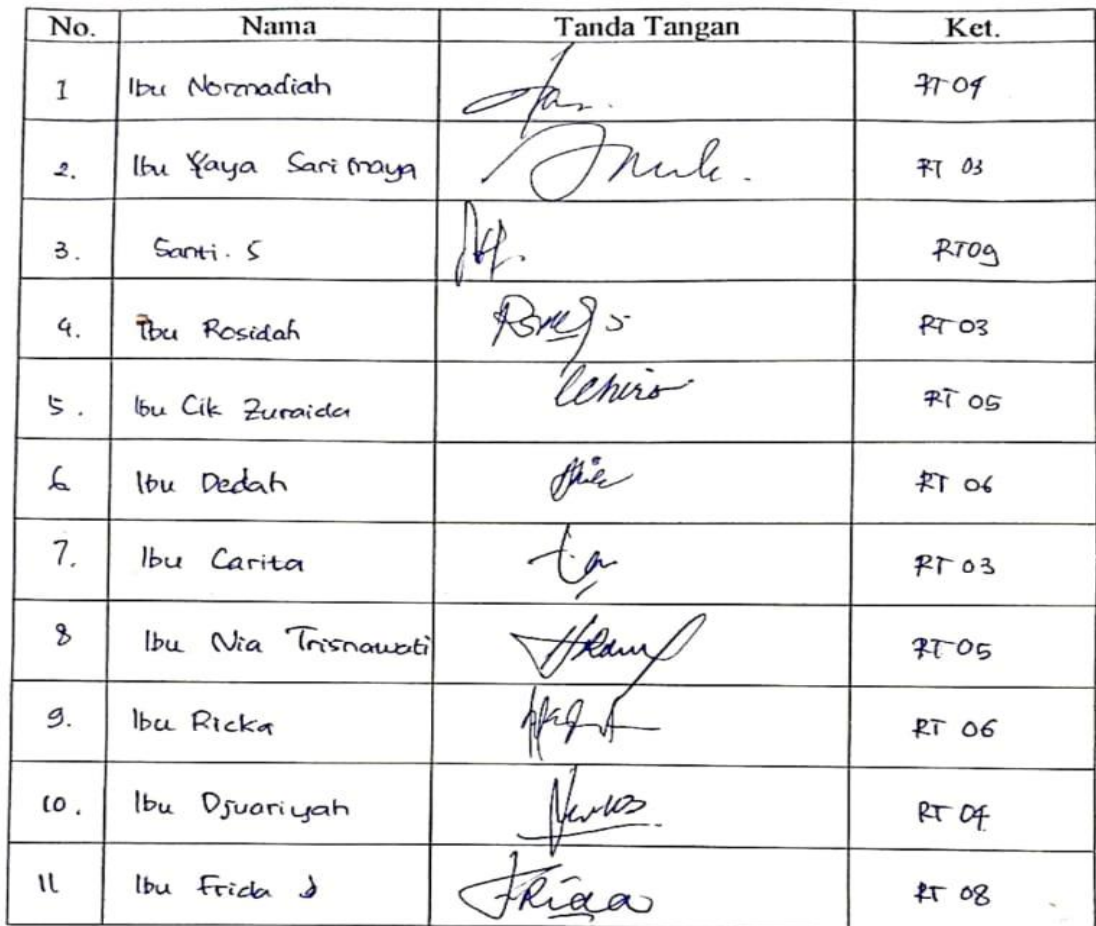 No. Nama Tanda Tangan Ket.
1 Ibu Normadiah RT 04
2. Ibu Yaya Sari maya RT 03
3. Santi. S RT09
4. Ibu Rosidah RT 03
5. Ibu Cik Zuraida RT 05
6 Ibu Dedah RT 06
7. Ibu Carita RT 03
8 Ibu Nia Trisnawati RT 05
9. Ibu Ricka RT 06
10. Ibu Djuariyah RT 04
11 Ibu Frida Frida RT 08